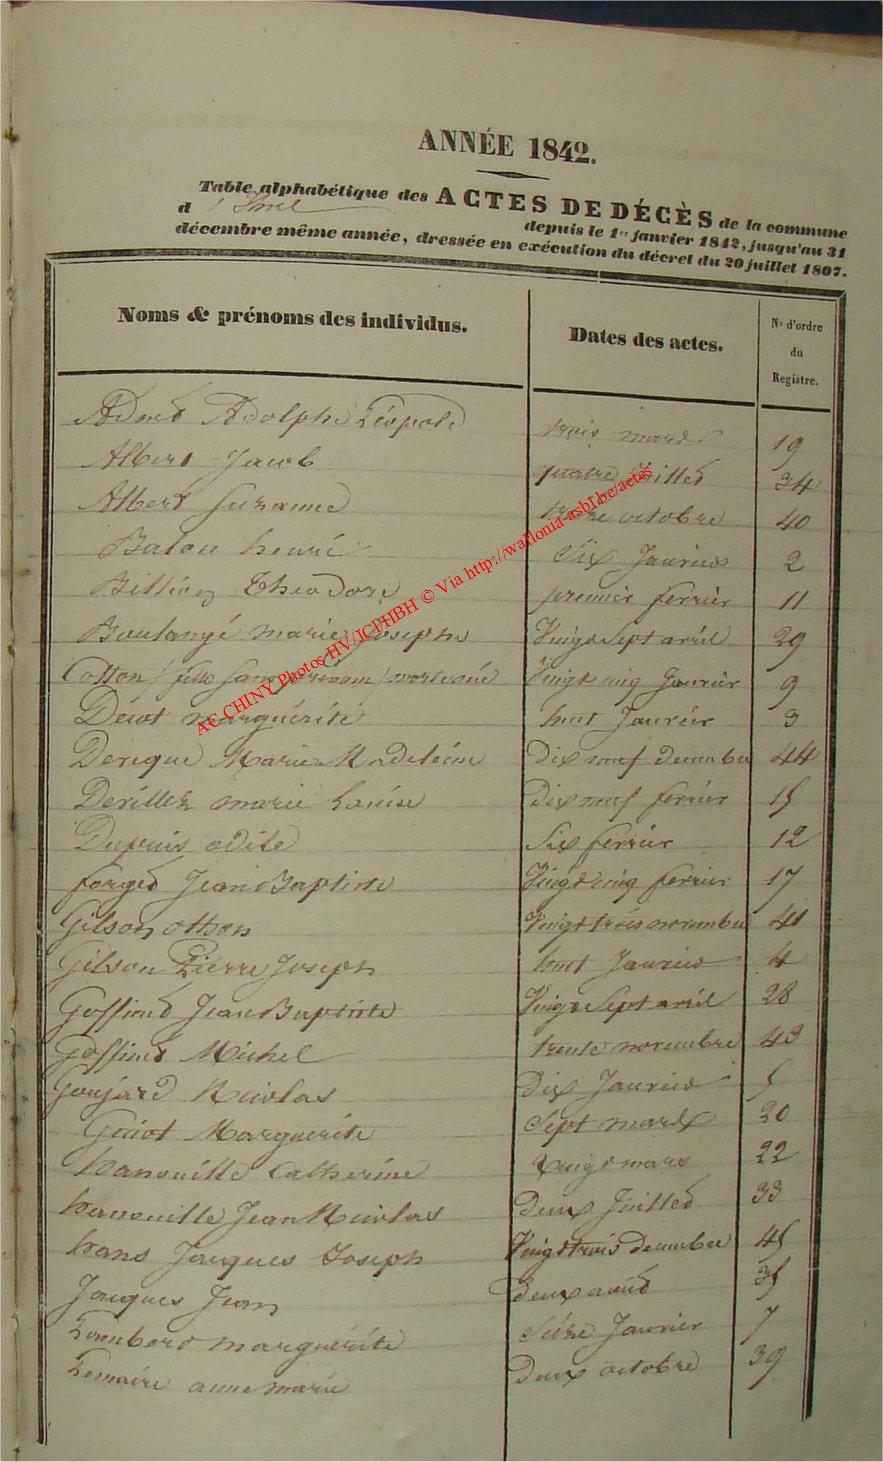 ANNÉE 1842.
Table alphabétique des ACTES DE DÉCÈS de la commune
d' depuis le 1er janvier 1842, jusqu'au 31
décembre même année, dressée en exécution du décret du 20 juillet 1807.
Noms & prénoms des individus. Dates des actes. No d'ordre
du
Registre.
Adolphe Léopold trois mars 19
Albert Jacob quatre Juillet 34
Albert Suzanne treize octobre 40
Balon henri Six Janvier 2
Théodore premier fevrier 11
Boulangé marie Joseph Vingt Sept avril 29
Cotton (fille sans prénom) mort née Vingt cinq Janvier 9
marguérite huit Janvier 3
Marie Madeleine Dix neuf Decembre 44
marie Louise Dix neuf fevrier 15
Dupuis odile Six fevrier 12
forget Jean Baptiste Vingt cinq fevrier 17
Gilson othon Vingt trois novembre 41
Gilson Pierre Joseph huit Janvier 4
Goffinet Jean Baptiste Vingt Sept avril 28
Goffinet Michel trente novembre 43
Goujard Nicolas Dix Janvier 5
Guiot Marguerite Sept mars 20
hanouille Catherine Vingt mars 22
hanouille Jean Nicolas Deux Juillet 33
hans Jacques Joseph Vingt trois decembre 45
Jacques Jean Deux août 35
Lambert marguérite Seize Janvier 7
Lemaire anne marie Deux octobre 39
AC CHINY Photos HV/JCI/HBH © Via http://wallonia-asbl.be/actes